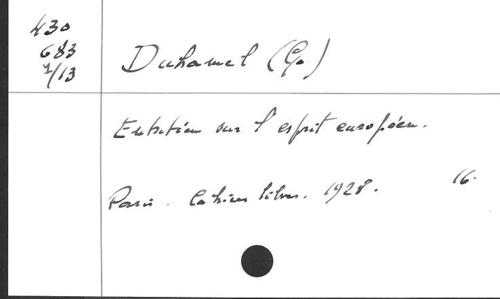 430
683
1/13
Duhamel (G.)
Entretien sur l'esprit européen.
Paris. Cahiers libres. 1928. 16.